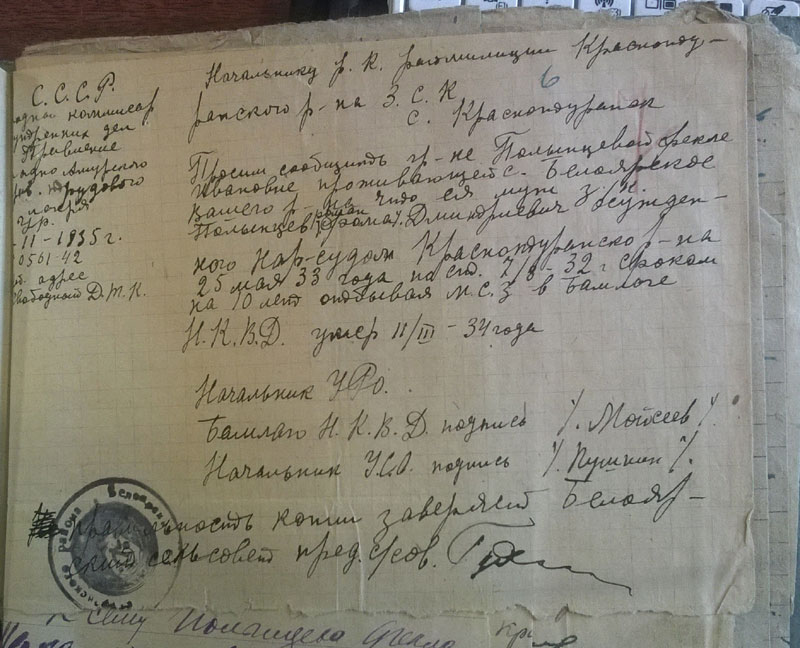 С.С.С.Р.
комиссар
внутренних дел
Управление
Амурского
трудового
лагеря
УРО
-11-1935 г.
0561-42
адрес
Свободный Д.В.К.
Начальнику р.к. рабмилиции Красноту-
ранского р-на З.С.К
с. Краснотуранск
6
Просим сообщить гр-не Полынцевой Фекле
Ивановне проживающей с. Белоярское
вашего р-на что ея муж З/К
Полынцев Дмитриевич осужден-
ного Нар-судом Краснотуранско р-на
25 мая 33 года по ст. 7/8-32 г сроком
на 10 лет отбывая м.с.з в Бамлаге
Н.К.В.Д. умер 11/III-34 года
Начальник УРО.
Бамлага Н.К.В.Д. подпись /. Мойсеев /.
Начальник УСО подпись /. Пушкин /.
Правильность копии заверяет Белояр-
ский сельсовет пред. с/сов.
района
сему Полынцева Фекла